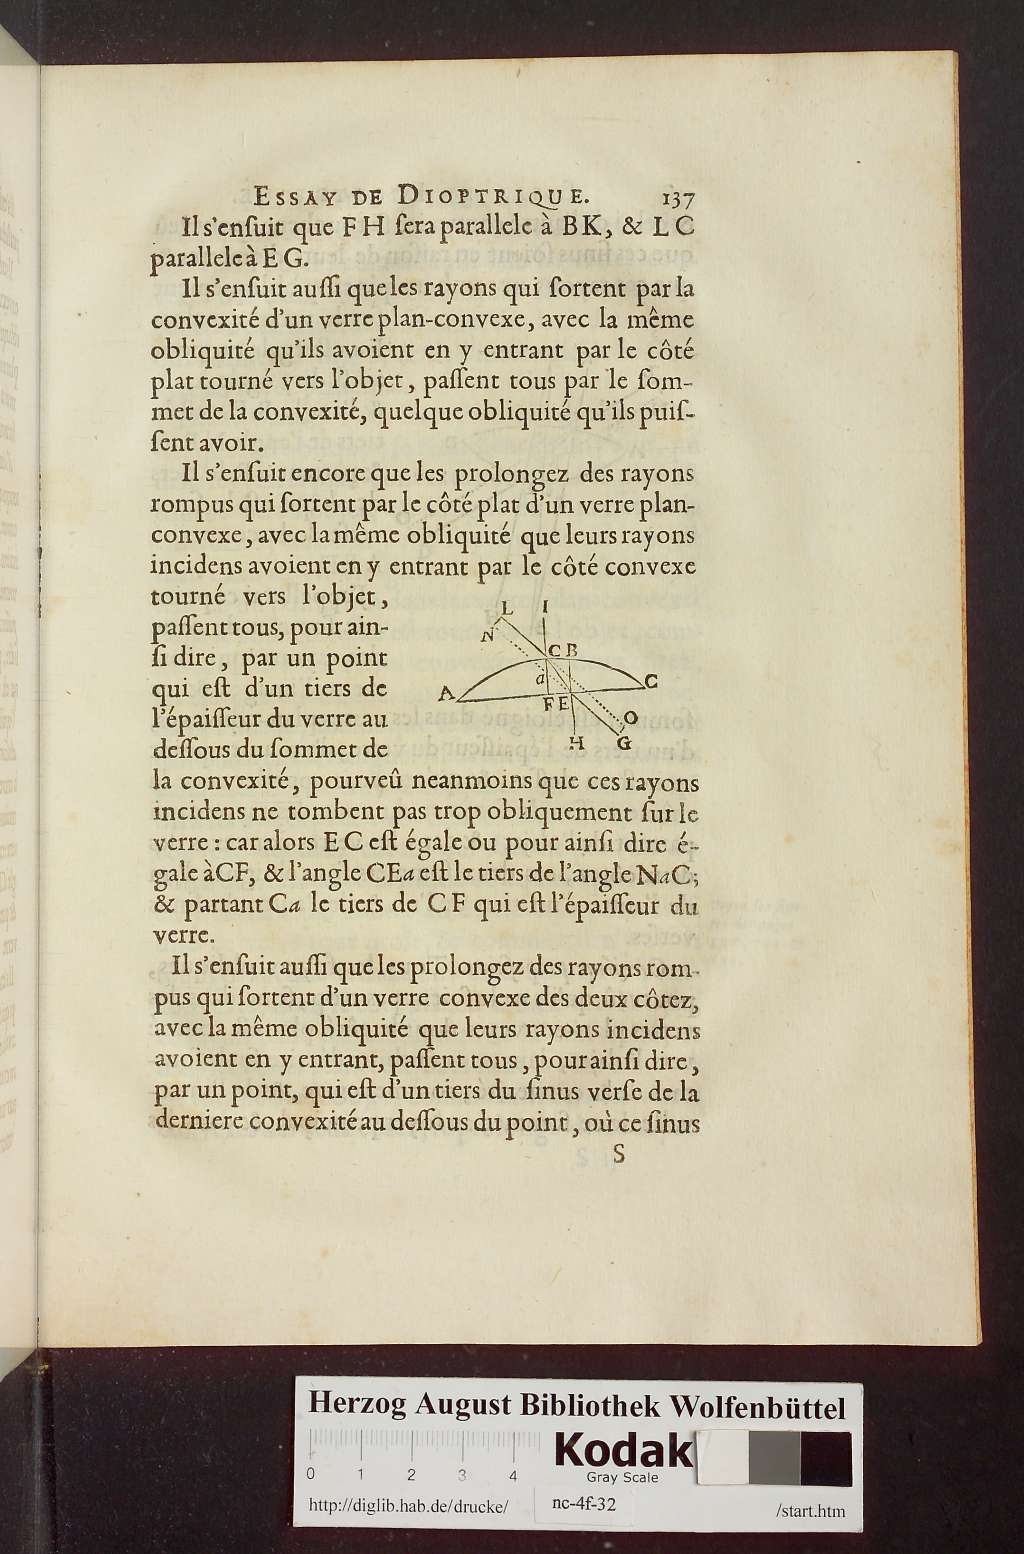 ESSAY DE DIOPTRIQUE. 137
Il s'enſuit que F H ſera parallele à B K, & L C
parallele à E G.
Il s'enſuit auſſi que les rayons qui ſortent par la
convexité d'un verre plan-convexe, avec la même
obliquité qu'ils avoient en y entrant par le côté
plat tourné vers l'objet, paſſent tous par le ſom-
met de la convexité, quelque obliquité qu'ils puiſ-
ſent avoir.
Il s'enſuit encore que les prolongez des rayons
rompus qui ſortent par le côté plat d'un verre plan-
convexe, avec la même obliquité que leurs rayons
incidens avoient en y entrant par le côté convexe
tourné vers l'objet,
paſſent tous, pour ain-
ſi dire, par un point
qui eſt d'un tiers de
l'épaiſſeur du verre au
deſſous du ſommet de
L I
N
C B
a
A C
F E
O
H G
la convexité, pourveû neanmoins que ces rayons
incidens ne tombent pas trop obliquement ſur le
verre : car alors E C eſt égale ou pour ainſi dire é-
gale à CF, & l'angle CEa eſt le tiers de l'angle NaC;
& partant Ca le tiers de C F qui eſt l'épaiſſeur du
verre.
Il s'enſuit auſſi que les prolongez des rayons rom-
pus qui ſortent d'un verre convexe des deux côtez,
avec la même obliquité que leurs rayons incidens
avoient en y entrant, paſſent tous, pour ainſi dire,
par un point, qui eſt d'un tiers du ſinus verſe de la
derniere convexité au deſſous du point, où ce ſinus
S
Herzog August Bibliothek Wolfenbüttel
Kodak
Gray Scale
0 1 2 3 4
http://diglib.hab.de/drucke/ nc-4f-32 /start.htm